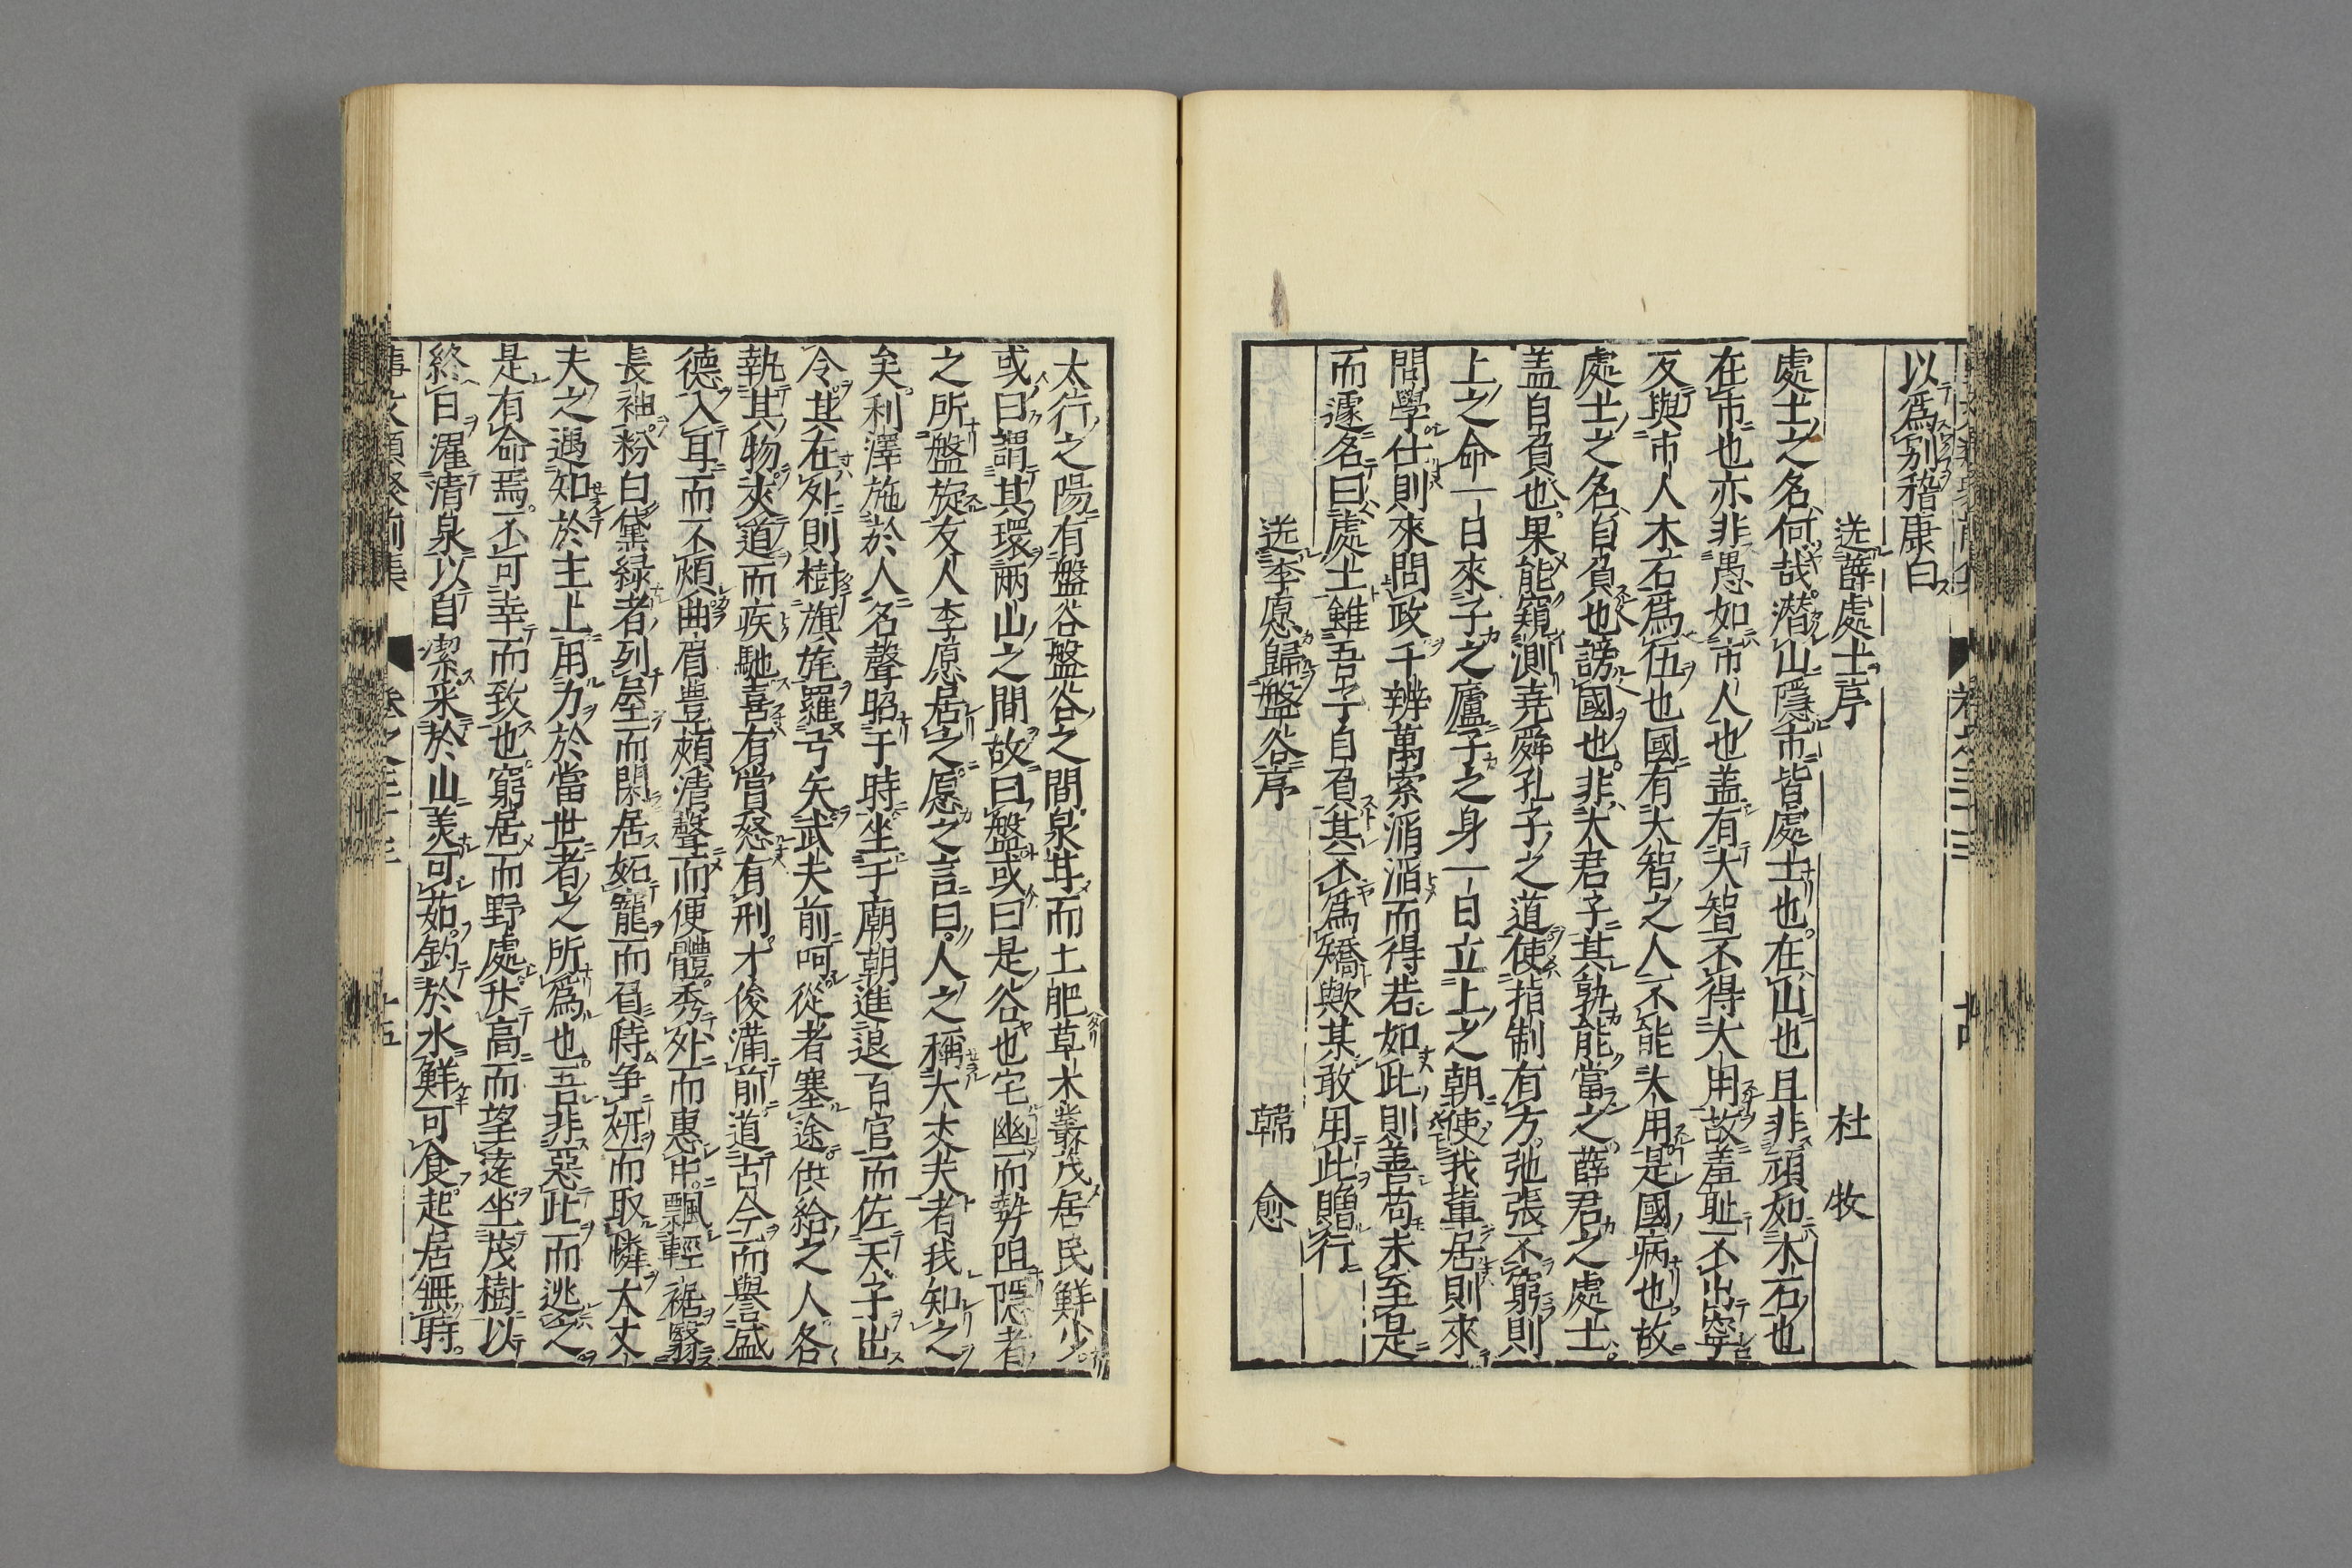 以爲別嵇康白
送薛處士序 杜牧
處士之名何哉潜山隱市皆處士也在山也且非頑如木石也
在市也亦非愚如市人也盖有大智不得大用故羞耻不出寧
反與市人木石爲伍也國有大智之人不能大用是國病也故
處士之名自負也謗國也非大君子其孰能當之薛君之處士
盖自負也果能窺測堯舜孔子之道使指制有方弛張不窮則
上之命一日來子之廬子之身一日立上之朝使我軰居則來
問學仕則來問政千辨萬索滔滔而得若如此則善苟未至是
而遽名曰處士雖吾子自負其不爲矯歟某敢用此贈行
送李愿歸盤谷序 韓愈
太行之陽有盤谷盤谷之間泉甘而土肥草木叢茂居民鮮少
或曰謂其環兩山之間故曰盤或曰是谷也宅幽而勢阻隱者
之所盤旋友人李愿居之愿之言曰人之稱大丈夫者我知之
矣利澤施於人名聲昭于時坐于廟朝進退百官而佐天子出
令其在外則樹旗旄羅弓矢武夫前呵從者塞途供給之人各
執其物夾道而疾馳喜有賞怒有刑才俊滿前道古今而譽盛
德入耳而不煩曲眉豊頰清聲而便體秀外而惠中飄輕裾翳
長袖粉白黛緑者列屋而閑居妬寵而負恃争妍而取憐大丈
夫之遇知於主上用力於當世者之所爲也吾非惡此而逃之
是有命焉不可幸而致也窮居而野處升高而望遠坐茂樹以
終日濯清泉以自潔采於山美可茹釣於水鮮可食起居無時
事文類聚前集 卷之三十三 十五